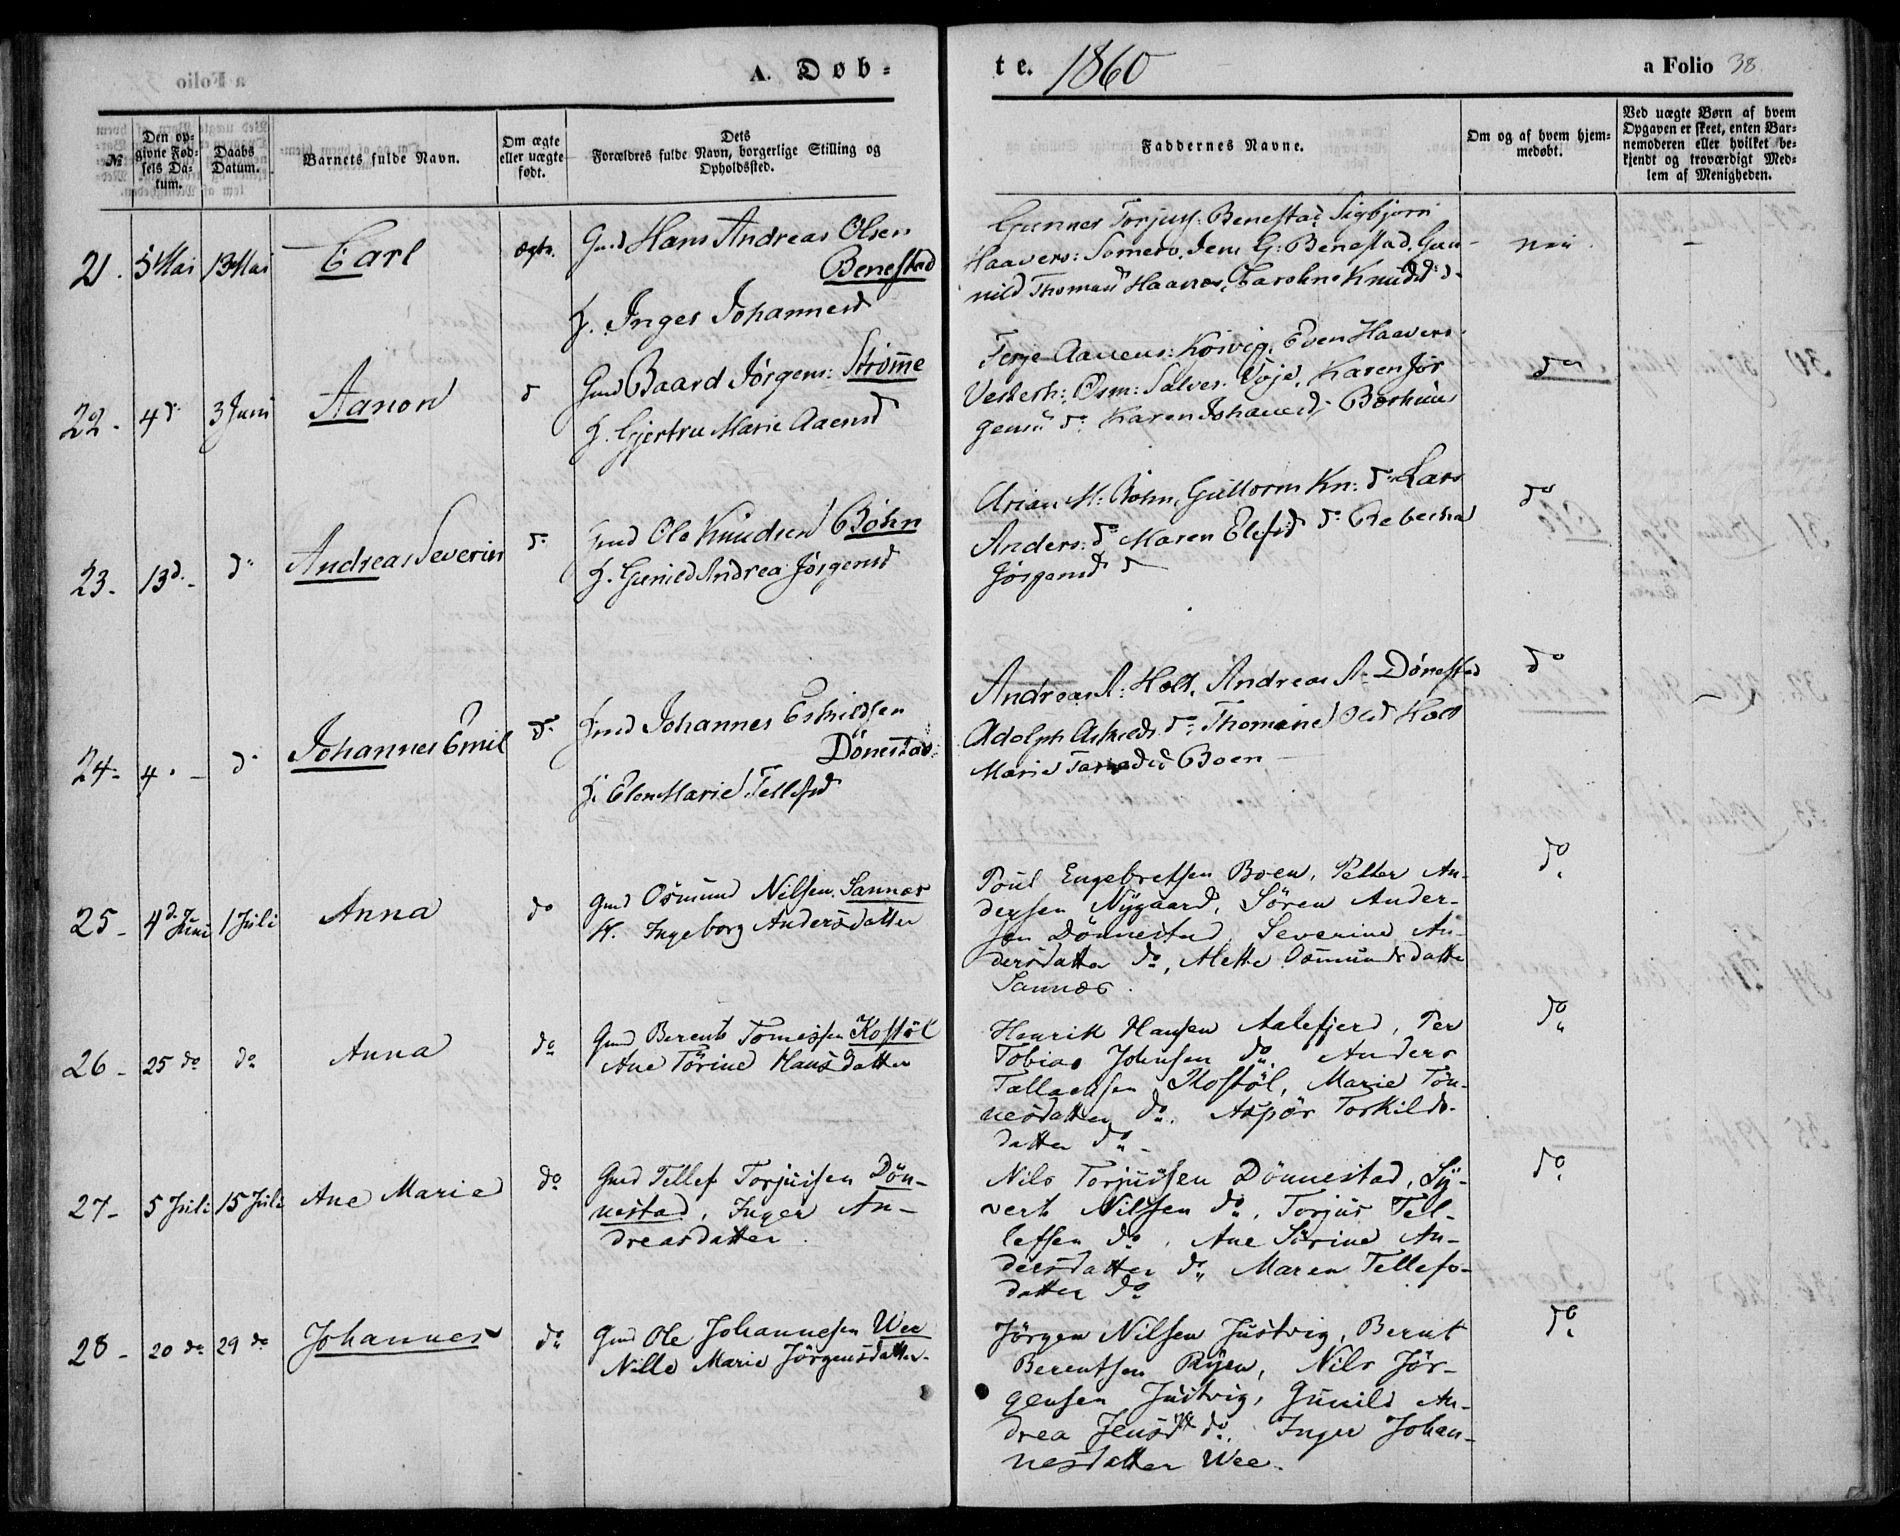 A. Døb-
te. 1860
a Folio 38
№
Den op-
givne Fød-
sels Da-
tum.
Daabs
Datum.
Barnets fulde Navn.
Om ægte
eller uægte
født.
Dets
Forældres fulde Navn, borgerlige Stilling og
Opholdssted.
Faddernes Navne.
Om og af hvem hjem-
medøbt.
Ved uægte Børn af hvem
Opgaven er skeet, enten Bar-
nemoderen eller hvilket be-
kjendt og troværdigt Med-
lem af Menigheden.
21. 5 Mai 13 Mai Carl ægte.
Gmd Hans Andreas Olsen
Benestad
H. Inger Johannesd
Gunner Torjus: Benestad Sigbjørn
Haavers: Somero, Jens G: Benestad, Gun-
nild Haanes, Caroline Knudsd d
nei -
22- 4 d 3 Juni Aanon d
Gmd Baard Jørgens: Strømme
H. Gjertru Marie Aaensd
Terje Aanens: Kosvig, Even Haavers
Osm: Salves: Voje, Karen Jør
gensd do Karen Johannesd
do
23- 13 d.- d Andreas Severin d
Gmd Ole Knudsen Bohn
H. Gunild Andrea Jørgensd
Arian M: Bohn, Guttorm Kn: do Lars
Anders: do Maren Elefsd do
Jørgensd d
do
24- 4 - d Johannes Emil d
Gmd Johannes Eskildsen
Dönestad
H. Elen Marie Tellefsd
Andreas A: Holt, Andreas A: Dönestad
Adolph do Thomine Olsd Holt
Marie Boen
do
25- 4 d. Juni 1 Juli Anna do
Gmd Osmund Nilsen Sannes
H. Ingeborg Andersdatter
Poul Engebretsen Boen, Petter An-
dersen Nygaard, Sören Ander-
sen Dönnestad, Severine An-
dersdatter do, Mette Osmundsdatter
Sannes.
do
26- 25 do do Anna do
Gmd Berent Tomessen Kostöl
Ane Törine Hansdatter
Henrik Hansen Aalefjerd, Per
Tobias Johnsen do. Anders
Tallaksen Kostöl, Marie Tön-
nesdatter do. Aspör Torkilds-
datter do -
do
27- 5 Juli 15 Juli Ane Marie do
Gmd Tellef Torjusen Dön-
nestad, Inger An-
dreasdatter.
Nils Torjusen Dönnestad, Sy-
vert Nilsen do, Torjus Tel-
lefsen do, Ane Sörine An-
dersdatter do Maren Tellefs-
datter do
do
28- 20 do 29 do Johannes do
Gmd Ole Johannesen Wee
Nille Marie Jörgensdatter.
Jörgen Nilsen Justvig, Bernt
Berentsen Ryen, Nils Jör-
gensen Justvig, Gunild An-
drea Jensdtr do. Inger Johan-
nesdatter Wee.
do